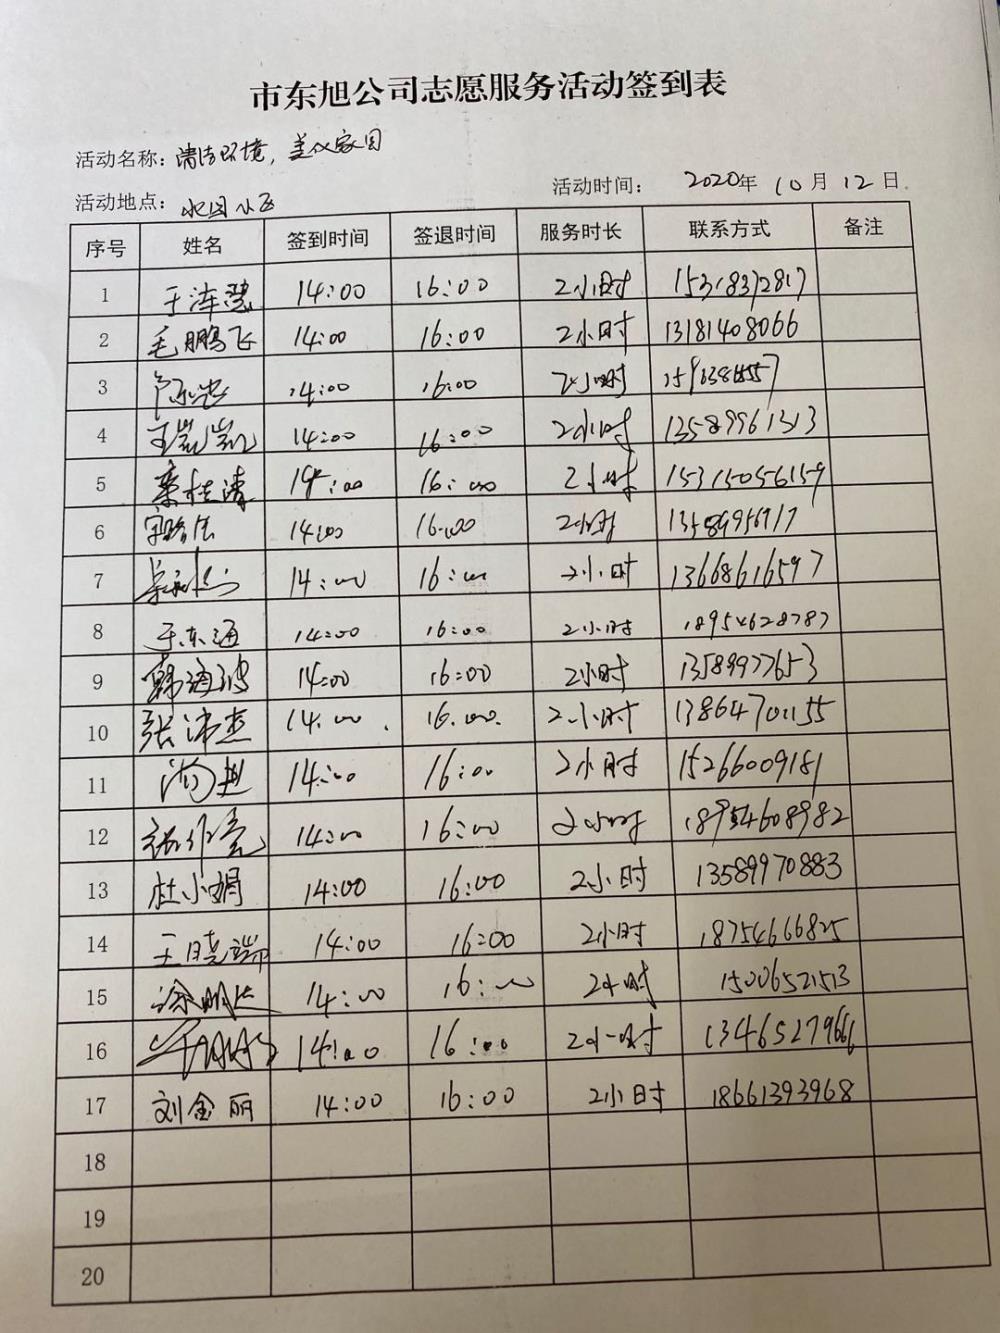 市东旭公司志愿服务活动签到表
活动名称：清洁环境，美化家园
活动地点：小区
活动时间： 2020年 10月 12日
序号 姓名 签到时间 签退时间 服务时长 联系方式 备注
1 14:00 16:00 2小时 15318372817
2 毛鹏飞 14:00 16:00 2小时 13181408066
3 14:00 16:00 2小时
4 王 14:00 16:00 2小时 13589961313
5 栾桂清 14:00 16:00 2小时 15315056159
6 14:00 16:00 2小时
7 14:00 16:00 2小时 13668616597
8 于东海 14:00 16:00 2小时 18954628787
9 韩海波 14:00 16:00 2小时 13589977653
10 张沛杰 14:00 16:00 2小时 13864701155
11 14:00 16:00 2小时 15266009181
12 14:00 16:00 2小时 18954608982
13 杜小娟 14:00 16:00 2小时 13589970883
14 王晓端 14:00 16:00 2小时 18754666825
15 14:00 16:00 2小时 15006521513
16 14:00 16:00 2小时 13465279666
17 刘金丽 14:00 16:00 2小时 18661393968
18
19
20